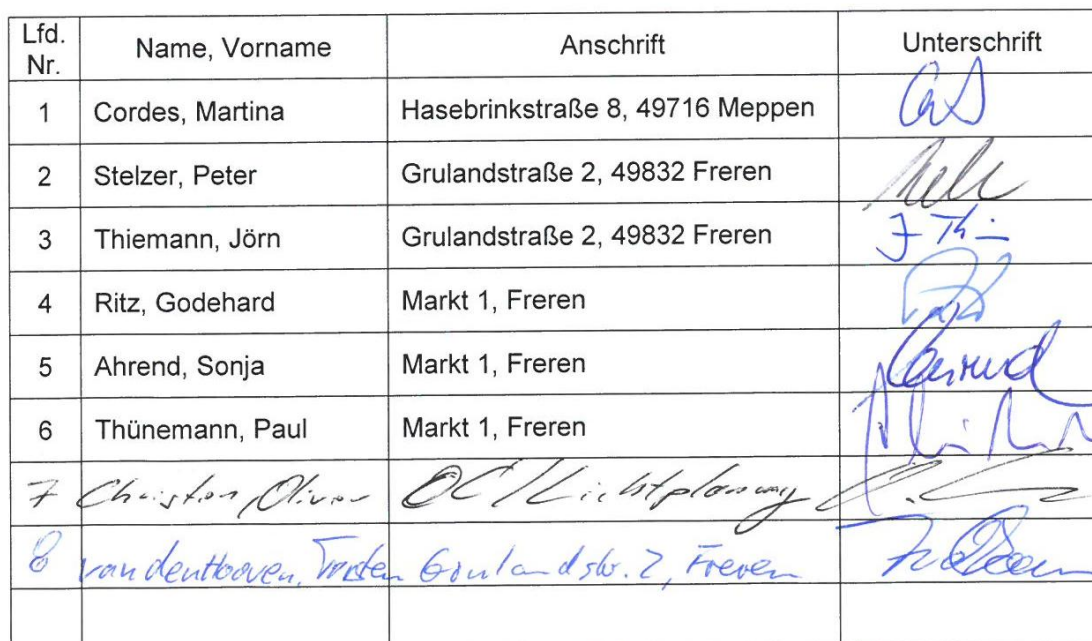 Lfd. Nr. Name, Vorname Anschrift Unterschrift
1 Cordes, Martina Hasebrinkstraße 8, 49716 Meppen
2 Stelzer, Peter Grulandstraße 2, 49832 Freren
3 Thiemann, Jörn Grulandstraße 2, 49832 Freren J Th
4 Ritz, Godehard Markt 1, Freren
5 Ahrend, Sonja Markt 1, Freren
6 Thünemann, Paul Markt 1, Freren
7 Christian, Oliver OC/Lichtplanung
8 van den Hoven, Torsten Grulandstr. 2, Freren